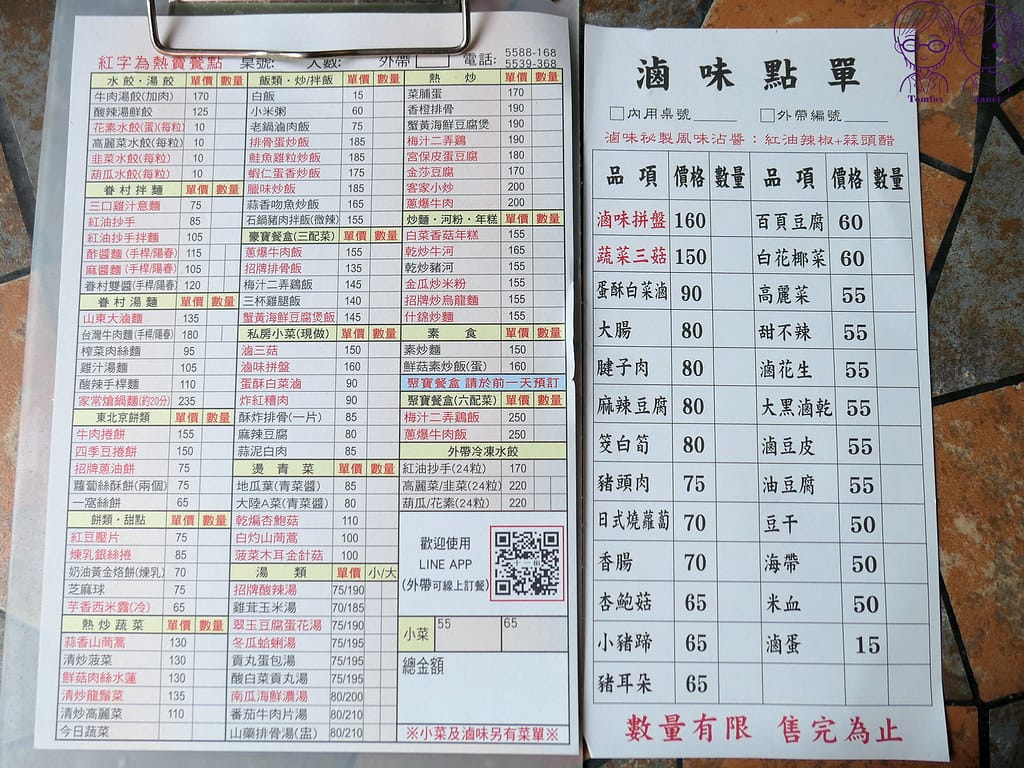 紅字為熱賣餐點 桌號: 人數: 外帶 電話: 5588-168
5539-368
水餃·湯餃 單價 數量
牛肉湯餃(加肉) 170
酸辣湯鮮餃 125
花素水餃(蛋)(每粒) 10
高麗菜水餃(每粒) 10
韭菜水餃(每粒) 10
葫瓜水餃(每粒) 10
眷村拌麵 單價 數量
三口雞汁意麵 75
紅油抄手 85
紅油抄手拌麵 105
酢醬麵(手桿/陽春) 115
麻醬麵(手桿/陽春) 105
眷村雙醬(手桿/陽春) 120
眷村湯麵 單價 數量
山東大滷麵 135
台灣牛肉麵(手桿/陽春) 180
榨菜肉絲麵 95
雞汁湯麵 105
酸辣手桿麵 110
家常熗鍋麵(約20分) 235
東北京餅類 單價 數量
牛肉捲餅 155
四季豆捲餅 150
招牌蔥油餅 75
蘿蔔絲酥餅(兩個) 75
一窩絲餅 65
餅類·甜點 單價 數量
紅豆壓片 75
煉乳銀絲捲 85
奶油黃金烙餅(煉乳) 70
芝麻球 75
芋香西米露(冷) 65
熱炒蔬菜 單價 數量
蒜香山茼蒿 130
清炒菠菜 130
鮮菇肉絲水蓮 130
清炒龍鬚菜 135
清炒高麗菜 110
今日蔬菜
飯類·炒/拌飯 單價 數量
白飯 15
小米粥 60
老鍋滷肉飯 75
排骨蛋炒飯 185
鮭魚雞粒炒飯 185
蝦仁蛋香炒飯 175
臘味炒飯 185
蒜香吻魚炒飯 165
石鍋豬肉拌飯(微辣) 155
豪寶餐盒(三配菜) 單價 數量
蔥爆牛肉飯 155
招牌排骨飯 135
梅汁二弄雞飯 145
三杯雞腿飯 140
蟹黃海鮮豆腐煲飯 145
私房小菜(現做) 單價 數量
滷三菇 150
滷味拼盤 160
蛋酥白菜滷 90
炸紅糟肉 90
酥炸排骨(一片) 85
麻辣豆腐 80
蒜泥白肉 85
燙青菜 單價 數量
地瓜葉(青菜醬) 85
大陸A菜(青菜醬) 80
乾煸杏鮑菇 110
白灼山茼蒿 100
菠菜木耳金針菇 100
湯類 單價 小/大
招牌酸辣湯 75/190
雞茸玉米湯 70/185
翠玉豆腐蛋花湯 75/190
冬瓜蛤蜊湯 75/195
貢丸蛋包湯 75/195
酸白菜貢丸湯 75/195
南瓜海鮮濃湯 80/200
番茄牛肉片湯 80/210
山藥排骨湯(盅) 80/210
熱炒 單價 數量
菜脯蛋 170
香橙排骨 190
蟹黃海鮮豆腐煲 190
梅汁二弄鷄 190
宮保皮蛋豆腐 180
金莎豆腐 170
客家小炒 200
蔥爆牛肉 200
炒麵·河粉·年糕 單價 數量
白菜香菇年糕 155
乾炒牛河 165
乾炒豬河 155
金瓜炒米粉 155
招牌炒烏龍麵 155
什錦炒麵 155
素食 單價 數量
素炒麵 150
鮮菇素炒飯(蛋) 160
聚寶餐盒 請於前一天預訂
聚寶餐盒(六配菜) 單價 數量
梅汁二弄鷄飯 250
蔥爆牛肉飯 250
外帶冷凍水餃
紅油抄手(24粒) 170
高麗菜/韭菜(24粒) 220
葫瓜/花素(24粒) 220
歡迎使用
LINE APP
(外帶可線上訂餐)
小菜 55 65
總金額
※小菜及滷味另有菜單※
滷味點單
內用桌號 外帶編號
滷味祕製風味沾醬：紅油辣椒+蒜頭醋
品項 價格 數量 品項 價格 數量
滷味拼盤 160 百頁豆腐 60
蔬菜三菇 150 白花椰菜 60
蛋酥白菜滷 90 高麗菜 55
大腸 80 甜不辣 55
腱子肉 80 滷花生 55
麻辣豆腐 80 大黑滷乾 55
筊白筍 80 滷豆皮 55
豬頭肉 75 油豆腐 55
日式燒蘿蔔 70 豆干 50
香腸 70 海帶 50
杏鮑菇 65 米血 50
小豬蹄 65 滷蛋 15
豬耳朵 65
數量有限 售完為止
Tomfox